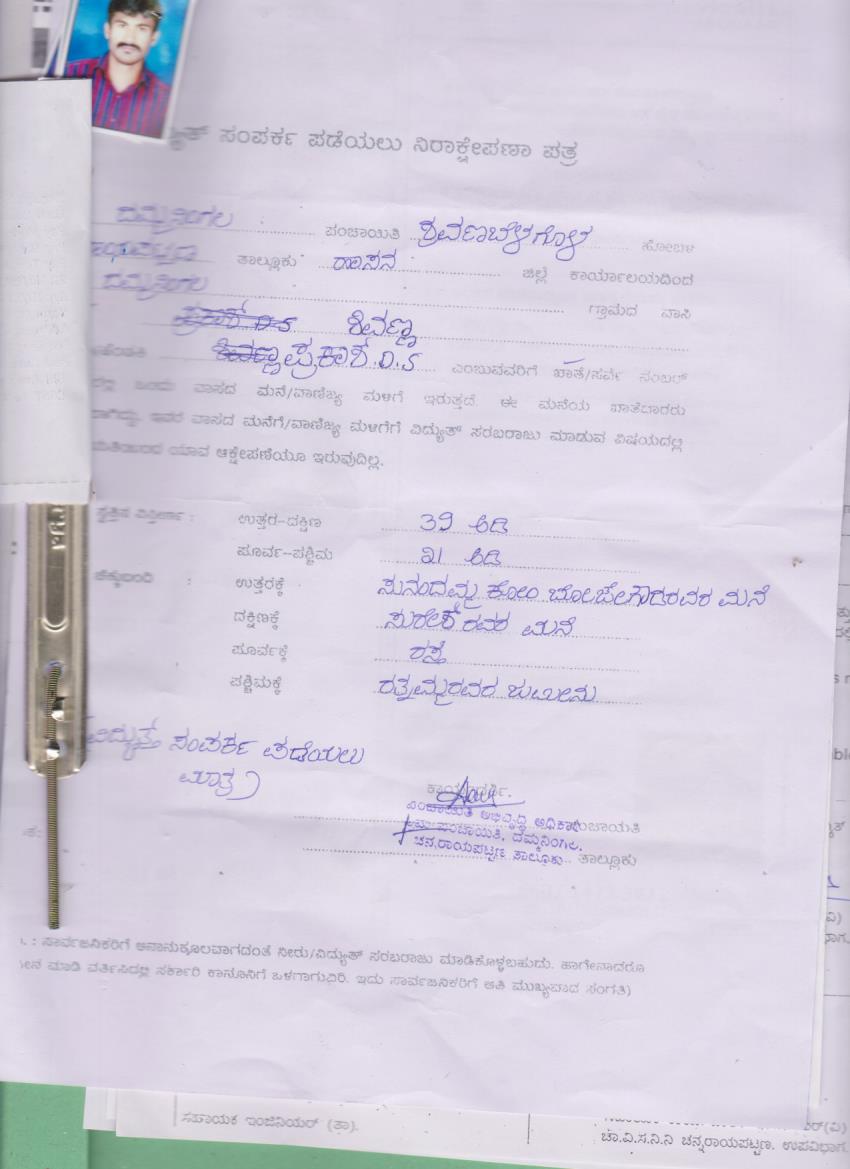 ಸಂಪರ್ಕ ಪಡೆಯಲು ನಿರಾಕ್ಷೇಪಣಾ ಪತ್ರ
ದಮ್ಮನಿಂಗಲ ಪಂಚಾಯಿತಿ ಶ್ರವಣಬೆಳಗೊಳ ಹೋಬಳಿ
ತಾಲ್ಲೂಕು ಹಾಸನ ಜಿಲ್ಲೆ ಕಾರ್ಯಾಲಯದಿಂದ
ದಮ್ಮನಿಂಗಲ ಗ್ರಾಮದ ವಾಸಿ
ಪ್ರಕಾಶ್ D.S ಶಿವಣ್ಣ
ಶಿವಣ್ಣ ಪ್ರಕಾಶ್.D.S ಎಂಬುವವರಿಗೆ ಖಾತೆ/ಸರ್ವೆ ನಂಬರ್
ಒಂದು ವಾಸದ ಮನೆ/ವಾಣಿಜ್ಯ ಮಳಿಗೆ ಇರುತ್ತದೆ. ಈ ಮನೆಯ ಖಾತೆದಾರರು
ಇವರ ವಾಸದ ಮನೆಗೆ/ವಾಣಿಜ್ಯ ಮಳಿಗೆಗೆ ವಿದ್ಯುತ್ ಸರಬರಾಜು ಮಾಡುವ ವಿಷಯದಲ್ಲಿ
ಯಾವ ಆಕ್ಷೇಪಣೆಯೂ ಇರುವುದಿಲ್ಲ.
ಉತ್ತರ-ದಕ್ಷಿಣ 39 ಅಡಿ
ಪೂರ್ವ-ಪಶ್ಚಿಮ ೩೧ ಅಡಿ
ಚೆಕ್ಕುಬಂದಿ : ಉತ್ತರಕ್ಕೆ ಸುನಂದಮ್ಮ ಕೋಂ ಬೋಜೇಗೌಡರವರ ಮನೆ
ದಕ್ಷಿಣಕ್ಕೆ ಸುರೇಶ್ ರವರ ಮನೆ
ಪೂರ್ವಕ್ಕೆ ರಸ್ತೆ
ಪಶ್ಚಿಮಕ್ಕೆ ರತ್ನಮ್ಮರವರ ಜಮೀನು
ವಿದ್ಯುತ್ ಸಂಪರ್ಕ ಪಡೆಯಲು
ಮಾತ್ರ)
ಪಂಚಾಯಿತಿ ಅಭಿವೃದ್ಧಿ ಅಧಿಕಾರಿ
ಗ್ರಾಮ ಪಂಚಾಯಿತಿ, ದಮ್ಮನಿಂಗಲ,
ಚನ್ನರಾಯಪಟ್ಟಣ ತಾಲ್ಲೂಕು. ತಾಲ್ಲೂಕು
: ಸಾರ್ವಜನಿಕರಿಗೆ ಅನಾನುಕೂಲವಾಗದಂತೆ ನೀರು/ವಿದ್ಯುತ್ ಸರಬರಾಜು ಮಾಡಿಕೊಳ್ಳಬಹುದು. ಹಾಗೇನಾದರೂ
ಮಾಡಿ ವರ್ತಿಸಿದಲ್ಲಿ ಸರ್ಕಾರಿ ಕಾನೂನಿಗೆ ಒಳಗಾಗುವಿರಿ. ಇದು ಸಾರ್ವಜನಿಕರಿಗೆ ಅತಿ ಮುಖ್ಯವಾದ ಸಂಗತಿ)
ಸಹಾಯಕ ಇಂಜಿನಿಯರ್ (ತಾ).
ಚಾ.ವಿ.ಸ.ನಿ.ನಿ ಚನ್ನರಾಯಪಟ್ಟಣ. ಉಪವಿಭಾಗ